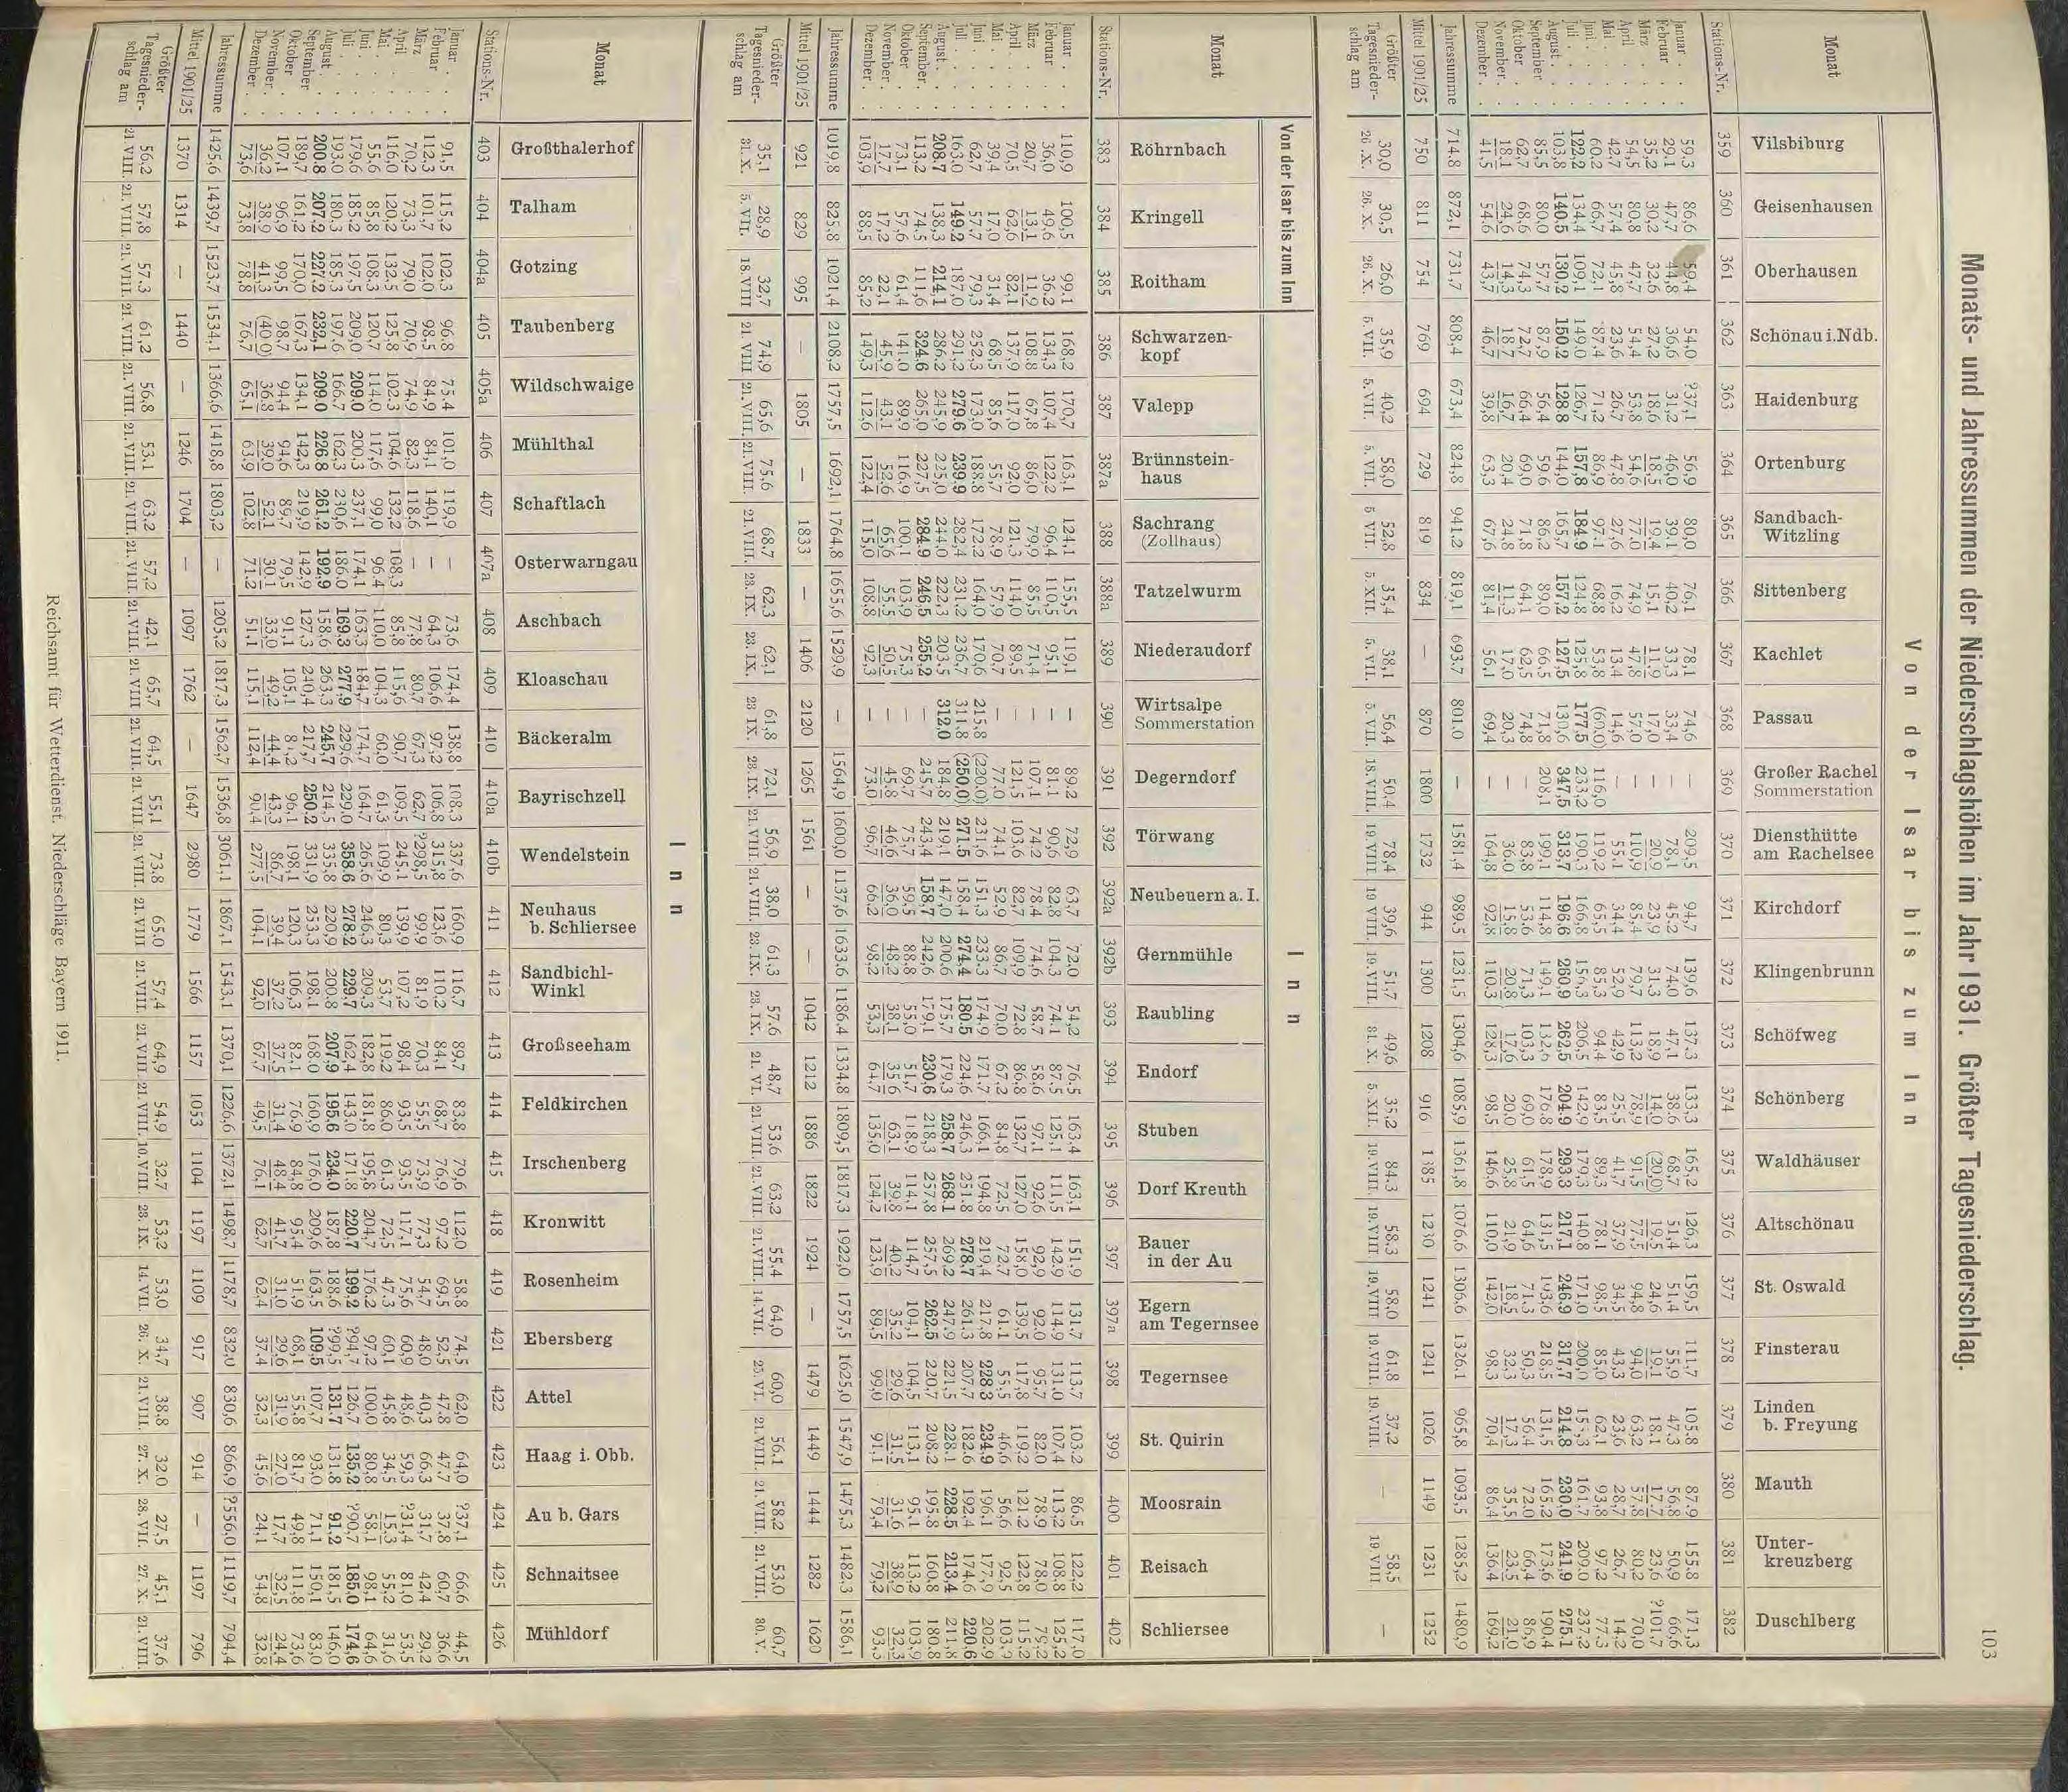 103
Monats- und Jahressummen der Niederschlagshöhen im Jahr 1931. Größter Tagesniederschlag.
Von der Isar bis zum Inn
Monat Vilsbiburg Geisenhausen Oberhausen Schönau i.Ndb. Haidenburg Ortenburg Sandbach-Witzling Sittenberg Kachlet Passau Großer Rachel Sommerstation Diensthütte am Rachelsee Kirchdorf Klingenbrunn Schöfweg Schönberg Waldhäuser Altschönau St. Oswald Finsterau Linden b. Freyung Mauth Unter-kreuzberg Duschlberg
Stations-Nr. 359 360 361 362 363 364 365 366 367 368 369 370 371 372 373 374 375 376 377 378 379 380 381 382
Januar . . 59,3 86,6 59,4 54,0 ?37,1 56,9 80,0 76,1 78,1 74,6 — 209,5 94,7 139,6 137,3 133,3 165,2 126,3 159,5 111,7 105,8 87,9 155,8 171,3
Februar . . 29,1 47,7 44,8 36,6 31,2 46,0 39,1 40,2 33,3 33,4 — 78,1 45,2 74,0 47,1 38,6 68,7 51,4 51,4 55,9 47,3 56,8 50,9 66,6
März . . . 35,2 30,2 32,6 27,2 18,6 18,5 19,4 15,1 11,9 17,0 — 20,9 23,9 31,3 18,9 14,0 (20,0) 19,5 24,6 19,1 18,1 17,7 23,6 ?101,7
April . . . 54,5 80,8 47,7 54,4 53,8 54,6 77,0 74,9 47,8 57,0 — 110,9 85,4 79,7 113,2 78,9 91,5 77,5 94,8 94,0 63,2 57,8 80,2 70,0
Mai . . . 42,7 57,4 45,8 23,6 26,7 47,8 27,6 16,2 13,4 14,6 — 55,1 34,4 52,9 42,9 25,5 41,7 37,9 34,5 43,3 23,6 28,7 26,7 14,2
Juni . . . 60,2 66,7 72,1 87,4 71,2 86,9 97,1 68,8 53,8 (60,0) 116,0 119,2 65,5 85,3 94,4 83,5 89,3 78,1 98,5 85,0 62,1 93,8 97,2 77,3
Juli . . . 122,2 134,4 109,1 149,0 126,7 157,8 184,9 124,8 125,8 177,5 233,2 190,3 166,8 156,3 206,5 142,9 179,3 140,8 171,0 200,0 161,7 209,0 237,2
August . . 103,8 140,5 130,2 150,2 128,8 144,0 165,7 157,2 127,5 130,6 347,5 313,7 196,6 260,9 262,5 204,9 293,3 217,1 246,9 317,7 214,8 230,0 241,9 275,1
September . 85,5 80,0 57,7 87,9 56,4 59,6 86,2 89,0 66,5 71,8 208,1 199,1 114,8 149,1 132,6 176,8 178,9 131,5 193,6 218,5 131,5 165,2 173,6 190,4
Oktober . . 62,7 68,6 74,3 72,7 66,4 69,0 71,8 64,1 62,5 74,8 — 83,8 53,6 71,3 103,3 69,0 61,5 64,6 71,3 50,3 56,4 72,0 66,4 86,9
November . 18,1 24,6 14,3 18,7 16,7 20,4 24,8 11,3 17,0 20,3 — 36,0 15,8 20,8 17,6 20,0 25,8 21,9 18,5 32,3 17,3 35,5 23,5 21,0
Dezember . 41,5 54,6 43,7 46,7 39,8 63,3 67,6 81,4 56,1 69,4 — 164,8 92,8 110,3 128,3 98,5 146,6 110,0 142,0 98,3 70,4 86,4 136,4 169,2
Jahressumme 714,8 872,1 731,7 808,4 673,4 824,8 941,2 819,1 693,7 801,0 — 1581,4 989,5 1231,5 1304,6 1085,9 1361,8 1076,6 1306,6 1326,1 965,8 1093,5 1285,2 1480,9
Mittel 1901/25 750 811 754 769 694 729 819 834 — 870 1800 1732 944 1300 1208 916 1385 1230 1241 1241 1026 1149 1231 1252
Größter 30,0 30,5 26,0 35,9 40,2 58,0 52,8 35,4 38,1 56,4 50,4 78,4 39,6 51,7 49,6 35,2 84,3 58,3 58,0 61,8 37,2 — 58,5 —
Tagesnieder-schlag am 26.X. 26.X. 26.X. 5.VII. 5.VII. 5.VII. 5.VII. 5.XII. 5.VII. 5.VII. 18.VIII. 19.VIII 19.VIII. 19.VIII. 31.X. 5.XII. 19.VIII. 19.VIII 19.VIII 19.VIII. 19.VIII. 19.VIII.
Von der Isar bis zum Inn
Inn
Monat Röhrnbach Kringell Roitham Schwarzen-kopf Valepp Brünnstein-haus Sachrang (Zollhaus) Tatzelwurm Niederaudorf Wirtsalpe Sommerstation Degerndorf Törwang Neubeuern a. I. Gernmühle Raubling Endorf Stuben Dorf Kreuth Bauer in der Au Egern am Tegernsee Tegernsee St. Quirin Moosrain Reisach Schliersee
Stations-Nr. 383 384 385 386 387 387a 388 388a 389 390 391 392 392a 392b 393 394 395 396 397 397a 398 399 400 401 402
Januar . . 110,9 100,5 99,1 168,2 170,7 163,1 124,1 155,5 119,1 — 89,2 72,9 63,7 72,0 54,2 76,5 163,4 163,1 151,9 131,7 113,7 103,2 86,5 122,2 117,0
Februar . . 36,0 49,6 36,2 134,3 107,4 122,2 96,4 110,5 95,1 — 81,1 90,6 82,8 104,3 74,1 87,5 125,1 111,5 142,9 114,9 131,0 107,4 113,2 108,8 125,2
März . . . 20,7 13,1 11,9 108,8 67,8 86,0 79,9 85,5 71,4 — 107,1 74,2 78,4 74,6 58,7 58,6 97,1 92,6 92,9 92,0 95,7 82,0 78,9 78,0 79,2
April . . . 70,5 62,6 82,1 137,9 117,0 92,0 121,3 114,0 89,5 — 121,5 103,6 82,7 109,9 72,8 86,8 132,7 127,0 158,0 139,5 117,8 119,2 121,2 122,8 115,2
Mai . . . 39,4 17,0 31,4 68,5 85,6 55,7 78,9 57,9 70,7 — 77,0 74,1 52,9 86,7 70,0 67,2 84,8 72,5 72,7 61,1 55,5 46,6 56,6 92,5 103,9
Juni . . . 62,7 57,7 79,3 252,3 173,0 188,8 172,2 164,0 170,6 215,8 (220,0) 231,6 151,3 233,3 174,9 171,7 166,1 194,8 219,4 217,8 228,3 234,9 196,1 177,9 202,9
Juli . . . 163,0 149,2 187,0 291,2 279,6 239,9 282,4 231,2 236,7 311,8 (250,0) 271,5 158,4 274,4 180,5 224,6 246,3 251,8 278,7 261,3 207,7 182,6 192,4 174,6 220,6
August . . 208,7 138,3 214,1 286,2 245,9 225,0 244,0 222,3 203,5 312,0 184,8 219,1 147,0 200,6 175,7 179,3 258,7 268,1 269,2 247,9 221,5 228,1 228,5 213,4 211,8
September . 113,2 74,5 111,6 324,6 265,0 227,5 284,9 246,5 255,2 — 245,7 243,4 158,7 242,6 179,1 230,6 218,3 257,8 257,5 262,5 220,7 208,2 195,8 160,8 180,8
Oktober . . 73,1 57,6 61,4 141,0 89,9 116,9 100,1 103,9 75,3 — 69,7 75,7 59,5 88,8 55,0 51,7 118,9 114,1 114,7 104,1 104,5 113,1 95,1 113,2 103,9
November . 17,7 17,2 22,1 45,9 43,1 52,6 65,6 55,5 50,5 — 45,8 46,6 36,0 48,2 38,1 35,6 63,1 39,8 40,2 35,2 29,6 31,5 31,6 38,9 32,3
Dezember . 103,9 88,5 85,2 149,3 112,6 122,4 115,0 108,8 92,3 — 73,0 96,7 66,2 98,2 53,3 64,7 135,0 124,2 123,9 89,5 99,0 91,1 79,4 79,2 93,3
Jahressumme 1019,8 825,8 1021,4 2108,2 1757,5 1692,1 1764,8 1655,6 1529,9 — 1564,9 1600,0 1137,6 1633,6 1186,4 1334,8 1809,5 1817,3 1922,0 1757,5 1625,0 1547,9 1475,3 1482,3 1586,1
Mittel 1901/25 921 829 995 — 1805 — 1833 — 1406 2120 1265 1561 — — 1042 1212 1886 1822 1924 — 1479 1449 1444 1282 1620
Größter 35,1 28,9 32,7 74,9 65,6 75,6 68,7 62,3 62,1 61,8 72,1 56,9 38,0 61,3 57,6 48,7 53,6 63,2 55,4 64,0 60,0 56,1 58,2 53,0 60,7
Tagesnieder-schlag am 31.X. 5.VII. 18.VIII 21.VIII 21.VIII. 21.VIII. 21.VIII. 23.IX. 23.IX. 23.IX. 23.IX. 21.VIII. 21.VIII. 23.IX. 23.IX. 21.VI. 21.VIII. 21.VIII. 21.VIII. 14.VII. 25.VI. 21.VIII. 21.VIII. 21.VIII. 30.V.
Inn
Monat Großthalerhof Talham Gotzing Taubenberg Wildschwaige Mühlthal Schaftlach Osterwarngau Aschbach Kloaschau Bäckeralm Bayrischzell Wendelstein Neuhaus b. Schliersee Sandbichl-Winkl Großseeham Feldkirchen Irschenberg Kronwitt Rosenheim Ebersberg Attel Haag i. Obb. Au b. Gars Schnaitsee Mühldorf
Stations-Nr. 403 404 404a 405 405a 406 407 407a 408 409 410 410a 410b 411 412 413 414 415 418 419 421 422 423 424 425 426
Januar . . 91,5 115,2 102,3 96,8 75,4 101,0 119,9 — 73,6 174,4 138,8 108,3 337,6 160,9 116,7 89,7 83,8 79,6 112,0 58,8 74,5 62,0 64,0 ?37,1 66,6 44,5
Februar . . 112,3 101,7 102,0 98,5 84,9 84,1 140,1 — 64,3 106,6 97,2 106,8 315,8 123,6 110,2 84,1 68,7 76,9 97,2 69,5 52,5 47,8 47,7 37,8 60,7 36,6
März . . . 70,2 73,3 79,0 70,9 74,9 82,3 118,6 — 77,8 80,7 67,3 62,7 ?298,5 99,9 81,9 70,3 55,5 73,9 77,3 54,7 48,0 40,3 66,3 31,7 42,4 29,2
April . . . 116,0 120,2 132,5 125,8 102,3 104,6 132,2 108,3 85,8 115,6 90,7 109,5 245,1 139,9 107,2 98,4 93,5 93,5 117,1 75,6 60,9 48,6 59,3 ?31,4 81,0 53,5
Mai . . . 55,6 85,8 108,3 120,7 114,0 117,6 99,0 96,4 110,0 104,3 60,0 61,3 109,9 80,3 53,7 119,2 86,0 61,3 72,5 47,3 60,1 45,8 34,5 15,3 55,2 31,6
Juni . . . 179,6 185,2 197,5 209,0 209,0 200,3 237,1 174,1 163,3 184,7 174,7 164,7 265,6 246,3 209,3 182,8 181,8 195,8 204,7 176,2 97,2 100,0 80,8 58,1 98,1 64,6
Juli . . . 193,0 180,3 185,3 197,6 166,7 162,3 230,6 186,0 169,3 277,9 229,6 229,0 358,6 278,2 229,7 162,4 143,0 171,8 220,7 199,2 ?94,7 126,7 135,2 ?90,7 185,0 174,6
August . . 200,8 207,2 227,2 232,1 209,0 226,8 261,2 192,9 158,6 263,3 245,7 214,5 335,8 220,9 200,8 207,9 195,6 234,0 187,8 188,6 ?99,5 181,7 131,8 91,2 181,5 146,0
September . 189,7 161,2 170,0 167,3 134,1 142,3 219,9 142,9 127,3 240,4 217,7 250,2 331,9 253,3 198,1 168,0 160,9 176,0 209,6 163,5 109,5 107,7 93,0 71,1 150,1 83,0
Oktober . . 107,1 96,9 99,5 98,7 94,4 94,6 89,7 79,5 91,1 105,1 96,1 198,1 120,3 106,3 82,1 76,9 84,8 95,4 51,9 68,1 55,8 81,7 49,8 111,8 73,6
November . 36,2 38,9 41,3 (40,0) 36,8 39,0 52,1 30,1 33,0 49,2 44,4 43,3 86,7 39,4 37,2 37,5 31,4 48,4 41,7 31,0 29,6 31,9 27,0 17,7 32,5 24,4
Dezember . 73,6 73,8 78,8 76,7 65,1 63,9 102,8 71,2 51,1 115,1 112,4 90,4 277,5 104,1 92,0 67,7 49,5 76,1 62,7 62,4 37,4 32,3 45,6 24,1 54,8 32,8
Jahressumme 1425,6 1439,7 1523,7 1534,1 1366,6 1418,8 1803,2 — 1205,2 1817,3 1562,7 1536,8 3061,1 1867,1 1543,1 1370,1 1226,6 1372,1 1498,7 1178,7 832,0 830,6 866,9 ?556,0 1119,7 794,4
Mittel 1901/25 1370 1314 — 1440 — 1246 1704 — 1097 1762 — 1647 2980 1779 1566 1157 1053 1104 1197 1109 917 907 914 — 1197 796
Größter 56,2 57,8 57,3 61,2 56,8 53,1 63,2 57,2 42,1 65,7 64,5 55,1 73,8 65,0 57,4 64,9 54,9 32,7 53,2 53,0 34,7 38,8 32,0 27,5 45,1 37,6
Tagesnieder-schlag am 21.VIII. 21.VIII. 21.VIII. 21.VIII. 21.VIII. 21.VIII. 21.VIII. 21.VIII. 21.VIII. 21.VIII 21.VIII. 21.VIII. 21.VIII. 21.VIII 21.VIII. 21.VIII. 21.VIII. 10.VIII. 23.IX. 14.VII. 26.X. 21.VIII. 27.X. 28.VII. 27.X. 21.VIII.
Reichsamt für Wetterdienst. Niederschläge Bayern 1911.